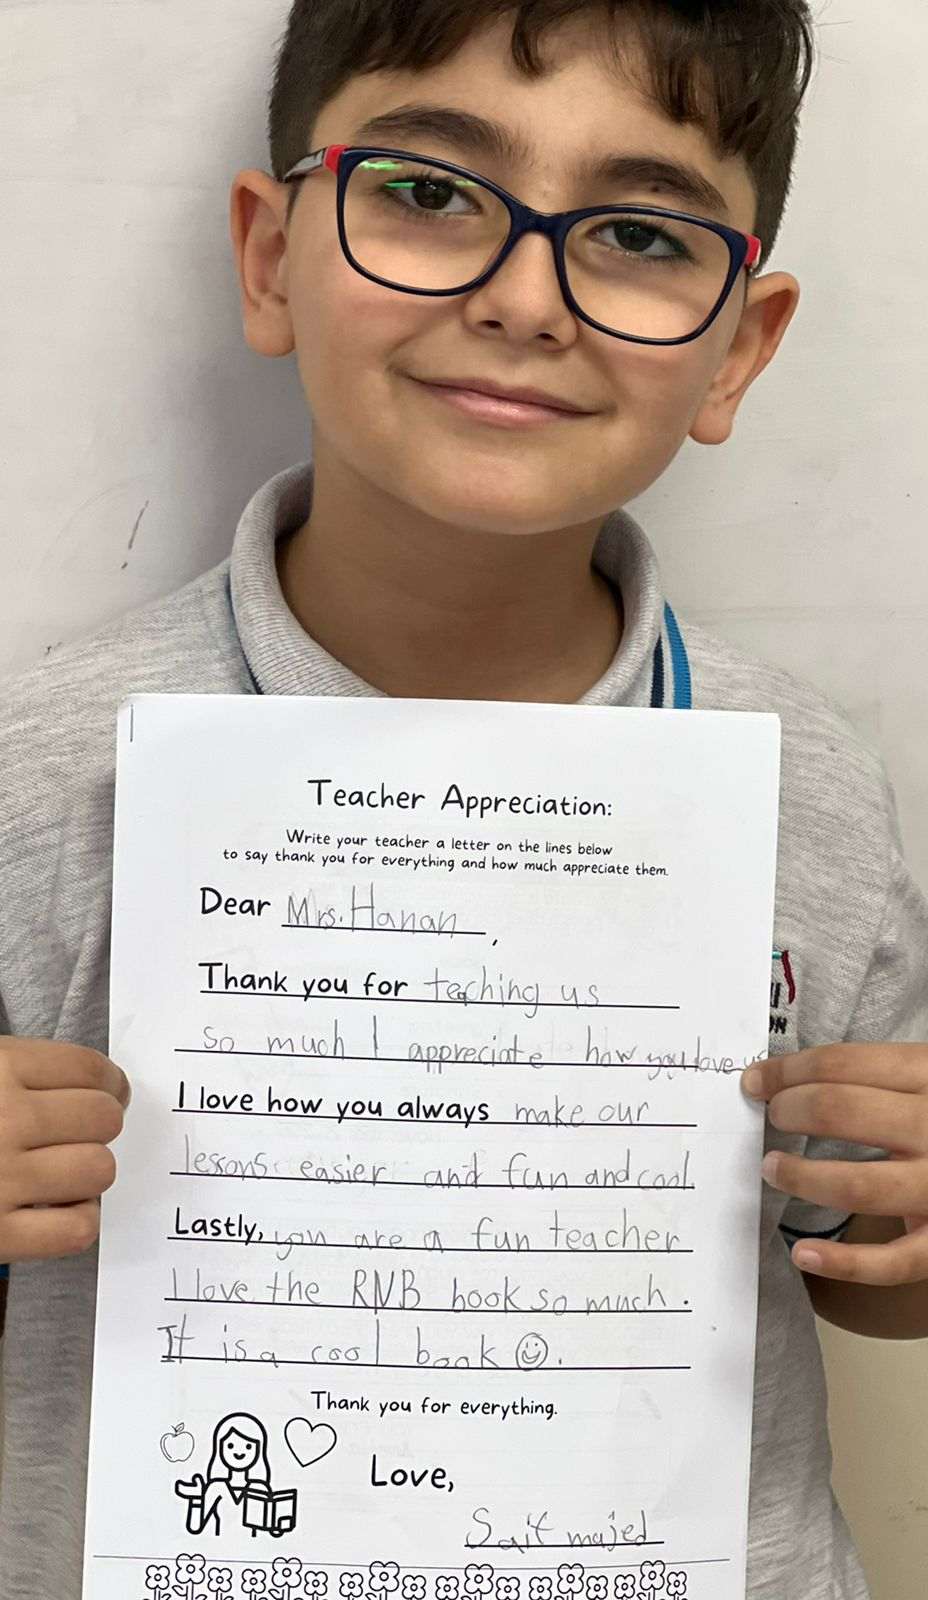 Teacher Appreciation:
Write your teacher a letter on the lines below
to say thank you for everything and how much appreciate them.
Dear Mrs. Hanan,
Thank you for teaching us
so much I appreciate how you love us
I love how you always make our
lessons easier and fun and cool.
Lastly, you are a fun teacher
I love the RNB book so much.
It is a cool book ☺.
Thank you for everything.
Love,
Saif majed